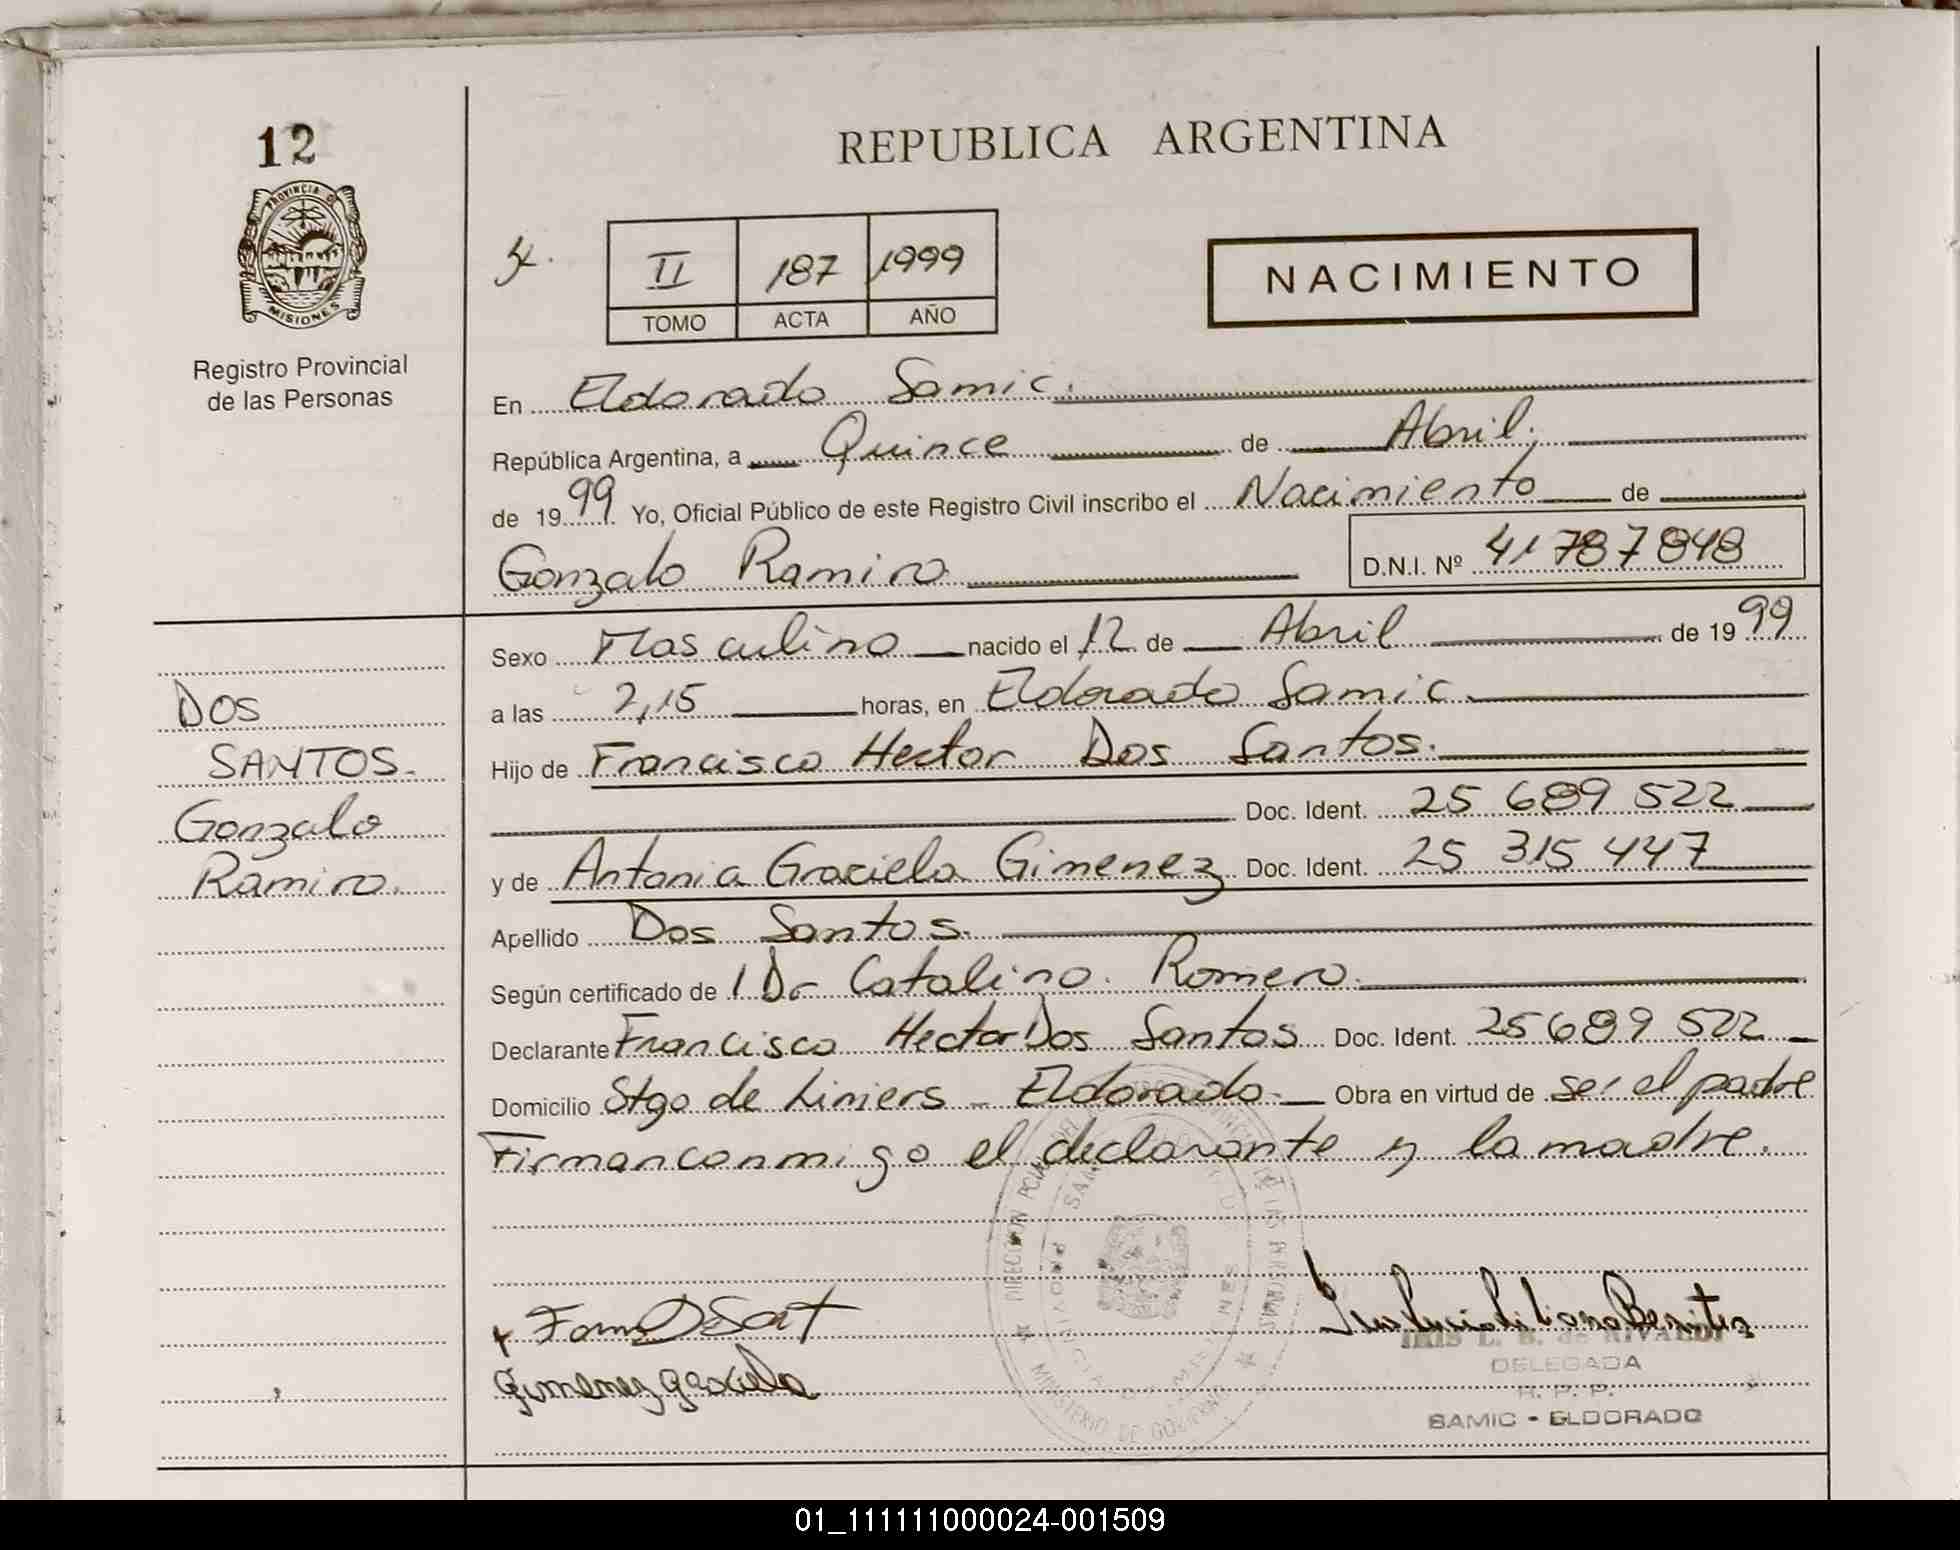 12
PROVINCIA DE
MISIONES
Registro Provincial
de las Personas
REPUBLICA ARGENTINA
II 187 1999
TOMO ACTA AÑO
NACIMIENTO
En Eldorado Samic.
República Argentina, a Quince de Abril,
de 1999 Yo, Oficial Público de este Registro Civil inscribo el Nacimiento de
Gonzalo Ramiro D.N.I. Nº 41 787 848
Sexo Masculino nacido el 12 de Abril de 1999
a las 2,15 horas, en Eldorado Samic.
Hijo de Francisco Hector Dos Santos.
Doc. Ident. 25 689 522
y de Antonia Graciela Gimenez Doc. Ident. 25 315 447
Apellido Dos Santos.
Según certificado de / Dr Catalino Romero.
Declarante Francisco Hector Dos Santos Doc. Ident. 25 689 522
Domicilio Stgo de Liniers - Eldorado. Obra en virtud de ser el padre
Firman conmigo el declarante y la madre.
DOS
SANTOS.
Gonzalo
Ramiro.
Gimenez graciela
DIRECCION PCIAL DEL
MINISTERIO DE GOBIERNO
IRIS L. B. de RIVALDI
DELEGADA
R. P. P.
SAMIC - ELDORADO
01_111111000024-001509